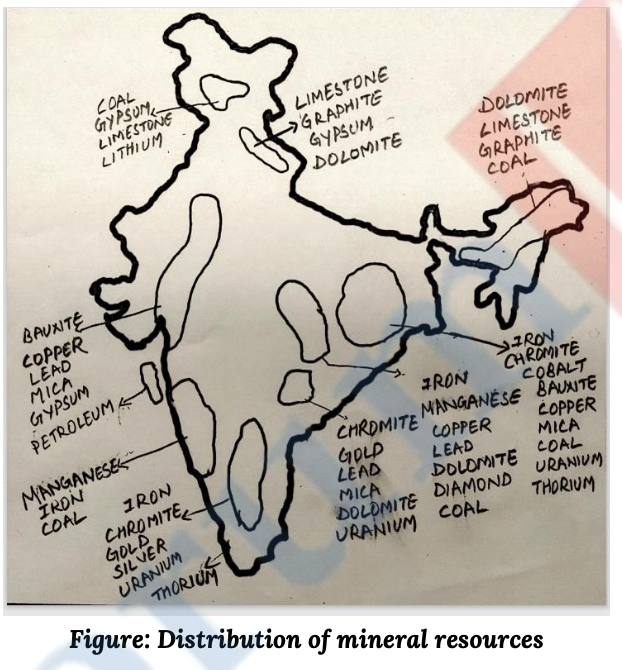 COAL
GYPSUM
LIMESTONE
LITHIUM
LIMESTONE
GRAPHITE
GYPSUM
DOLOMITE
DOLOMITE
LIMESTONE
GRAPHITE
COAL
BAUXITE
COPPER
LEAD
MICA
GYPSUM
PETROLEUM
MANGANESE
IRON
COAL
IRON
CHROMITE
GOLD
SILVER
URANIUM
THORIUM
CHROMITE
GOLD
LEAD
MICA
DOLOMITE
URANIUM
IRON
MANGANESE
COPPER
LEAD
DOLOMITE
DIAMOND
COAL
IRON
CHROMITE
COBALT
BAUXITE
COPPER
MICA
COAL
URANIUM
THORIUM
Figure: Distribution of mineral resources